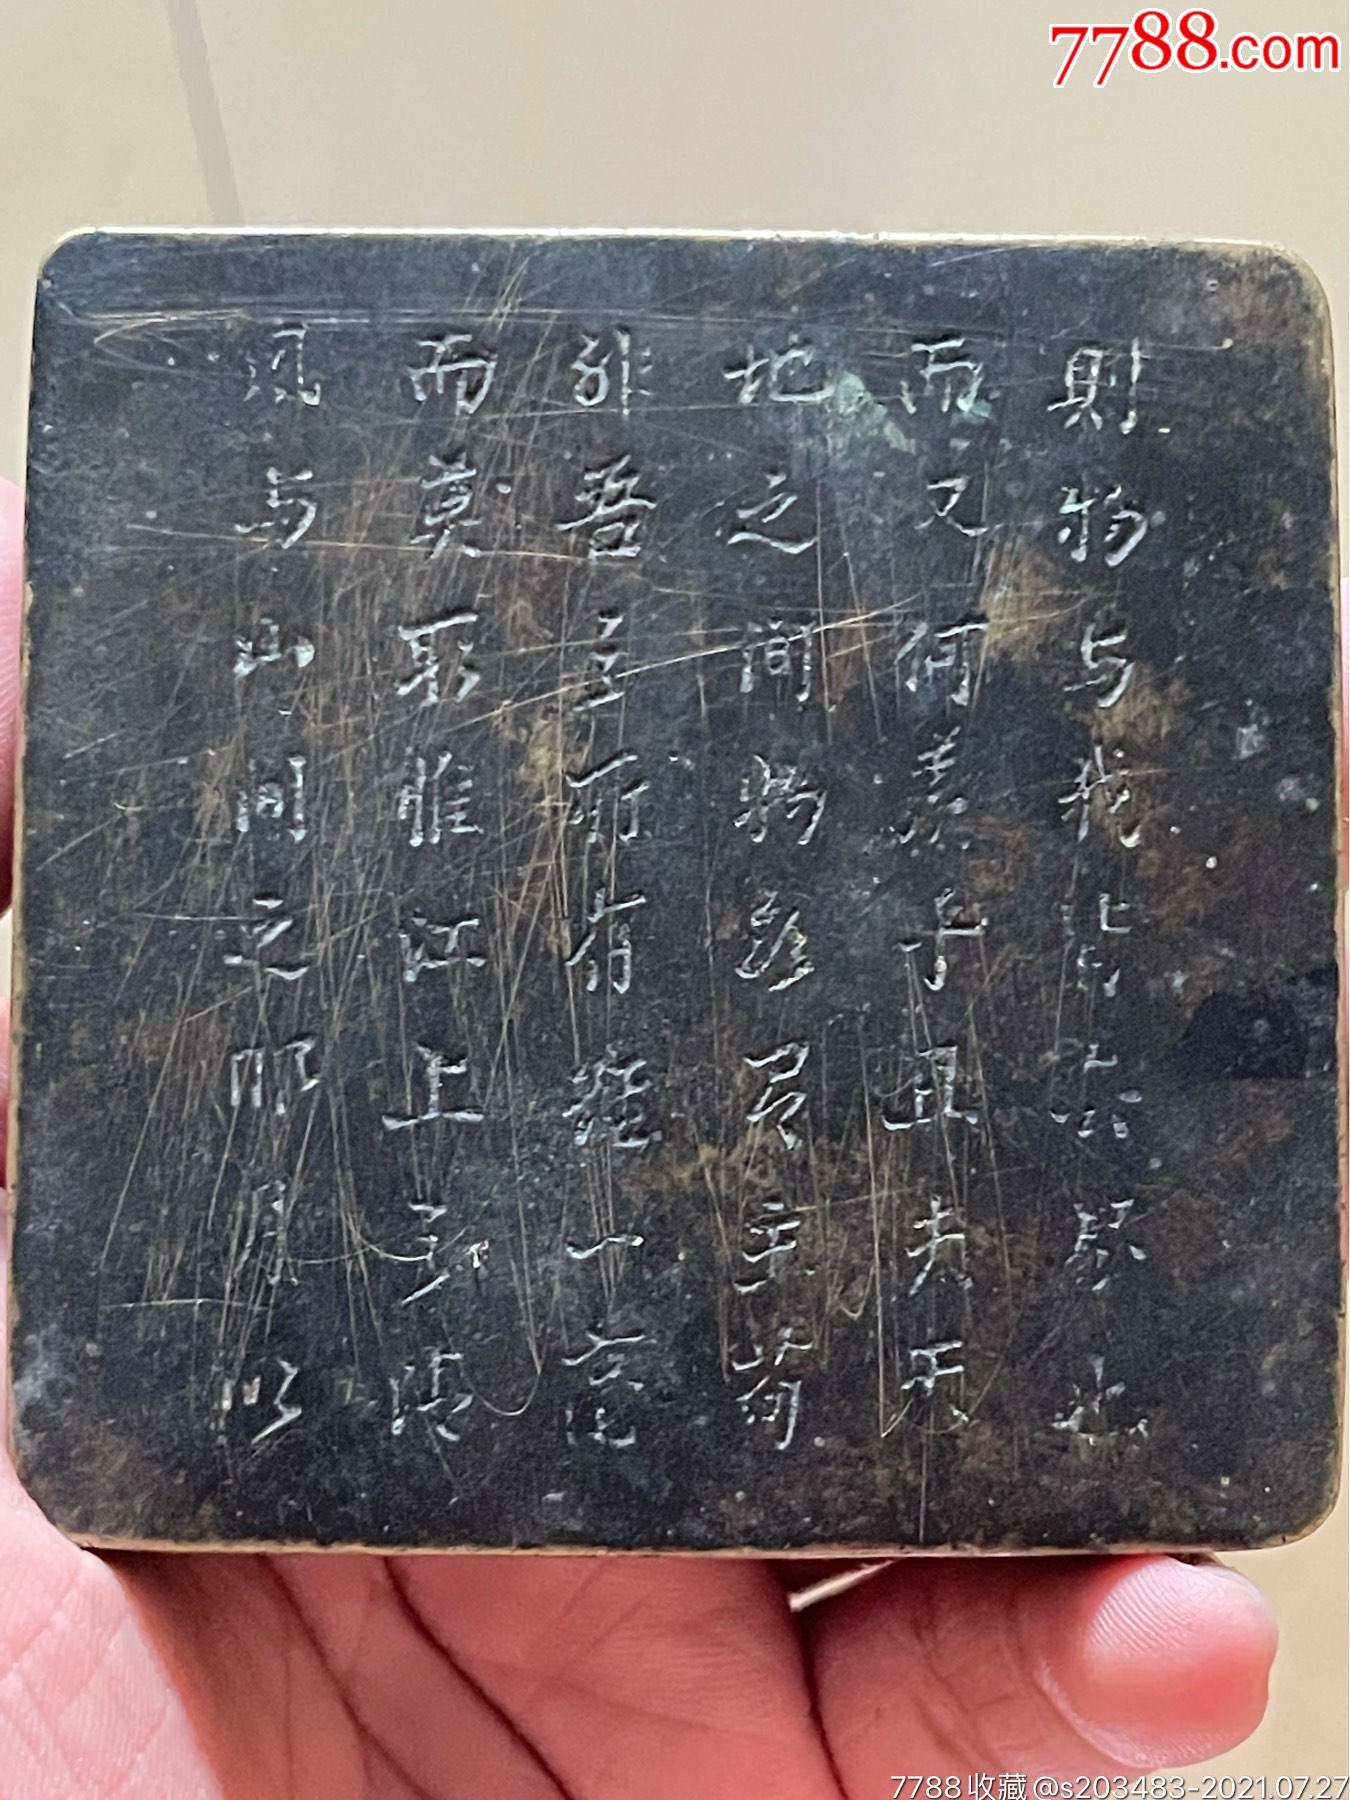 7788.com
則物与我皆也
而又何羡乎且夫天
地之間物主苟
非吾之所有雖一毫
而莫取惟江上之清
風与山間之明月以
7788收藏@s203483-2021.07.27